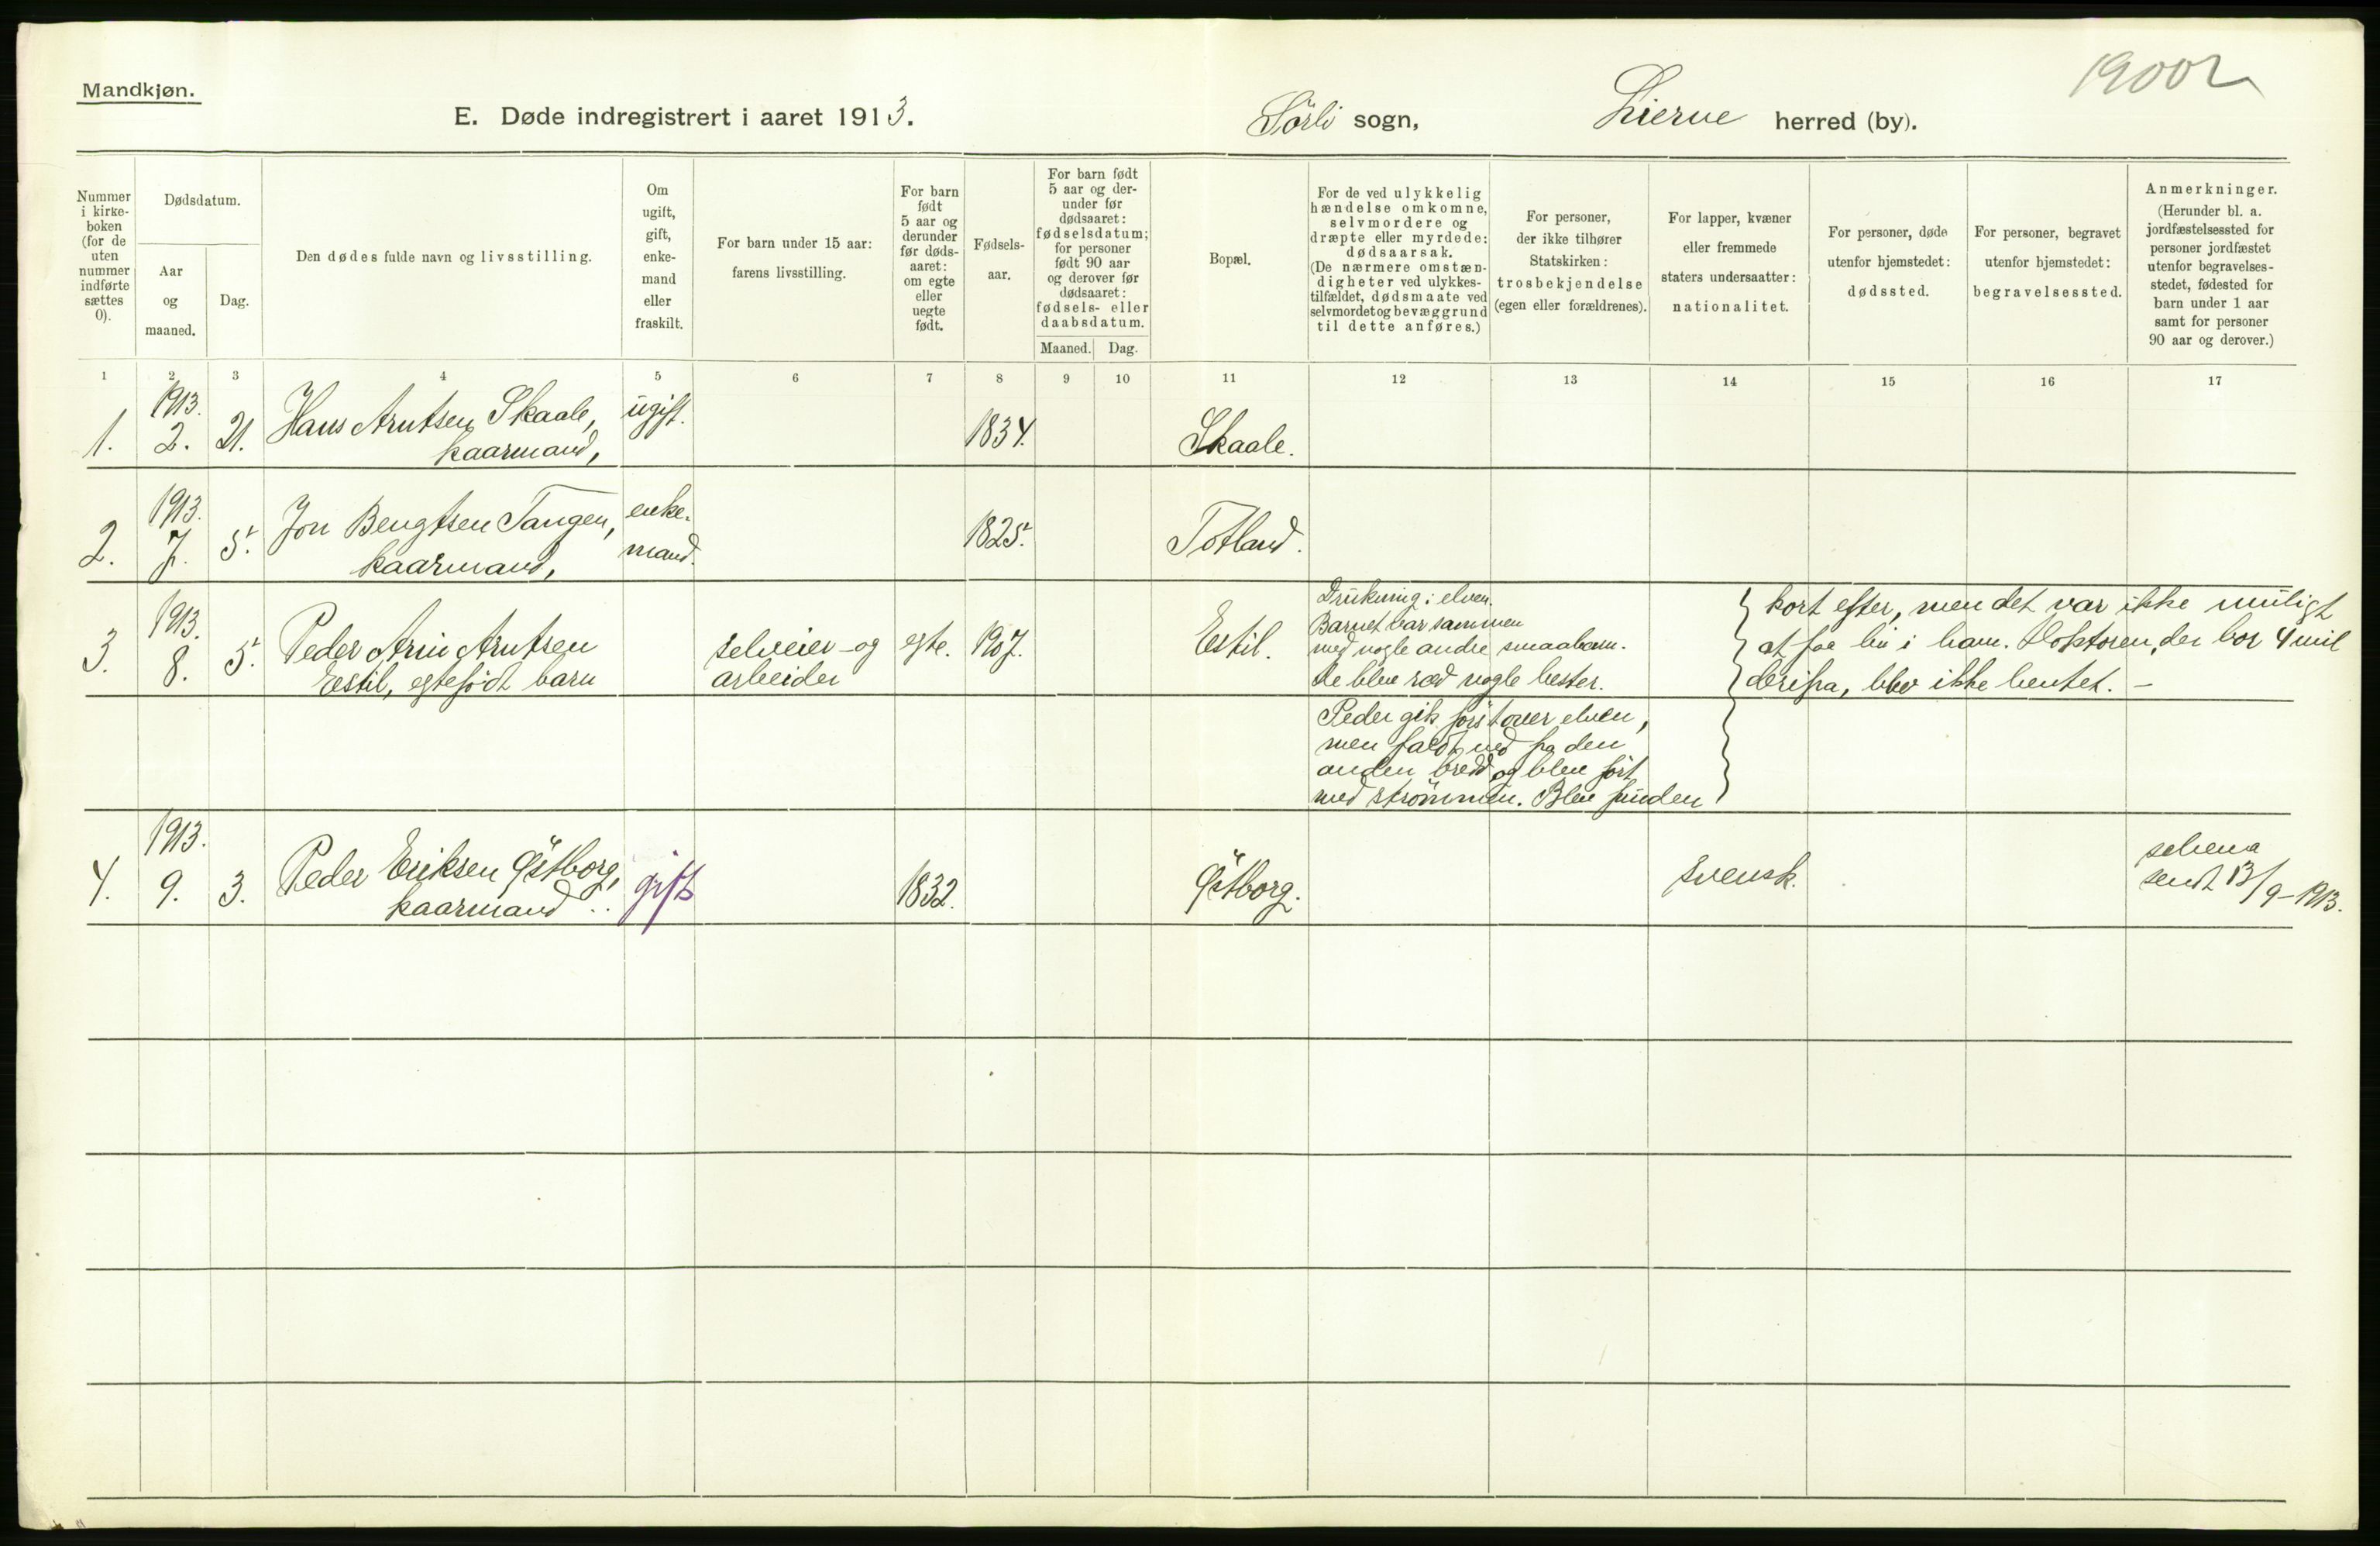 19002
Mandkjøn.
E. Døde indregistrert i aaret 1913. Sörli sogn, Lierne herred (by).
Nummer i kirke- boken (for de uten nummer indførte sættes 0).
Dødsdatum.
Aar og maaned.
Dag.
Den dødes fulde navn og livsstilling.
Om ugift, gift, enke- mand eller fraskilt.
For barn under 15 aar: farens livsstilling.
For barn født 5 aar og derunder før døds- aaret: om egte eller uegte født.
Fødsels- aar.
For barn født 5 aar og der- under før dødsaaret: fødselsdatum; for personer født 90 aar og derover før dødsaaret: fødsels- eller daabsdatum.
Maaned. Dag.
Bopæl.
For de ved ulykkelig hændelse omkomne, selvmordere og dræpte eller myrdede: dødsaarsak. (De nærmere omstæn- digheter ved ulykkes- tilfældet, dødsmaate ved selvmordet og bevæggrund til dette anføres.)
For personer, der ikke tilhører Statskirken: trosbekjendelse (egen eller forældrenes).
For lapper, kvæner eller fremmede staters undersaatter: nationalitet.
For personer, døde utenfor hjemstedet: dødssted.
For personer, begravet utenfor hjemstedet: begravelsessted.
Anmerkninger. (Herunder bl. a. jordfæstelsessted for personer jordfæstet utenfor begravelses- stedet, fødested for barn under 1 aar samt for personer 90 aar og derover.)
1 2 3 4 5 6 7 8 9 10 11 12 13 14 15 16 17
1. 1913. 2. 21. Hans Arntsen Skaale, ugift. 1834. Skaale.
kaarmand,
2. 1913. 7. 5. Jon Bengtsen Tangen, enke- 1825. Totland.
kaarmand, mand.
3. 1913. 8. 5. Peder Arni Arntsen selveier og egte. 1907. Estil.
Eestil, egtefödt barn arbeider
Drukning i elven.
Barnet var sammen
med nogle andre smaabarn.
De blev ræd nogle hester.
Peder gik först over elven,
men faldt ned fra den
anden bredd og blev fört
med strömmen. Blev funden
kort efter, men det var ikke muligt
at faa liv i ham. Doktoren, der bor 4 mil
derifra, blev ikke hentet. –
4. 1913. 9. 3. Peder Eriksen Östborg, gift 1832. Östborg. svensk. schema
kaarmand sendt 13/9-1913.